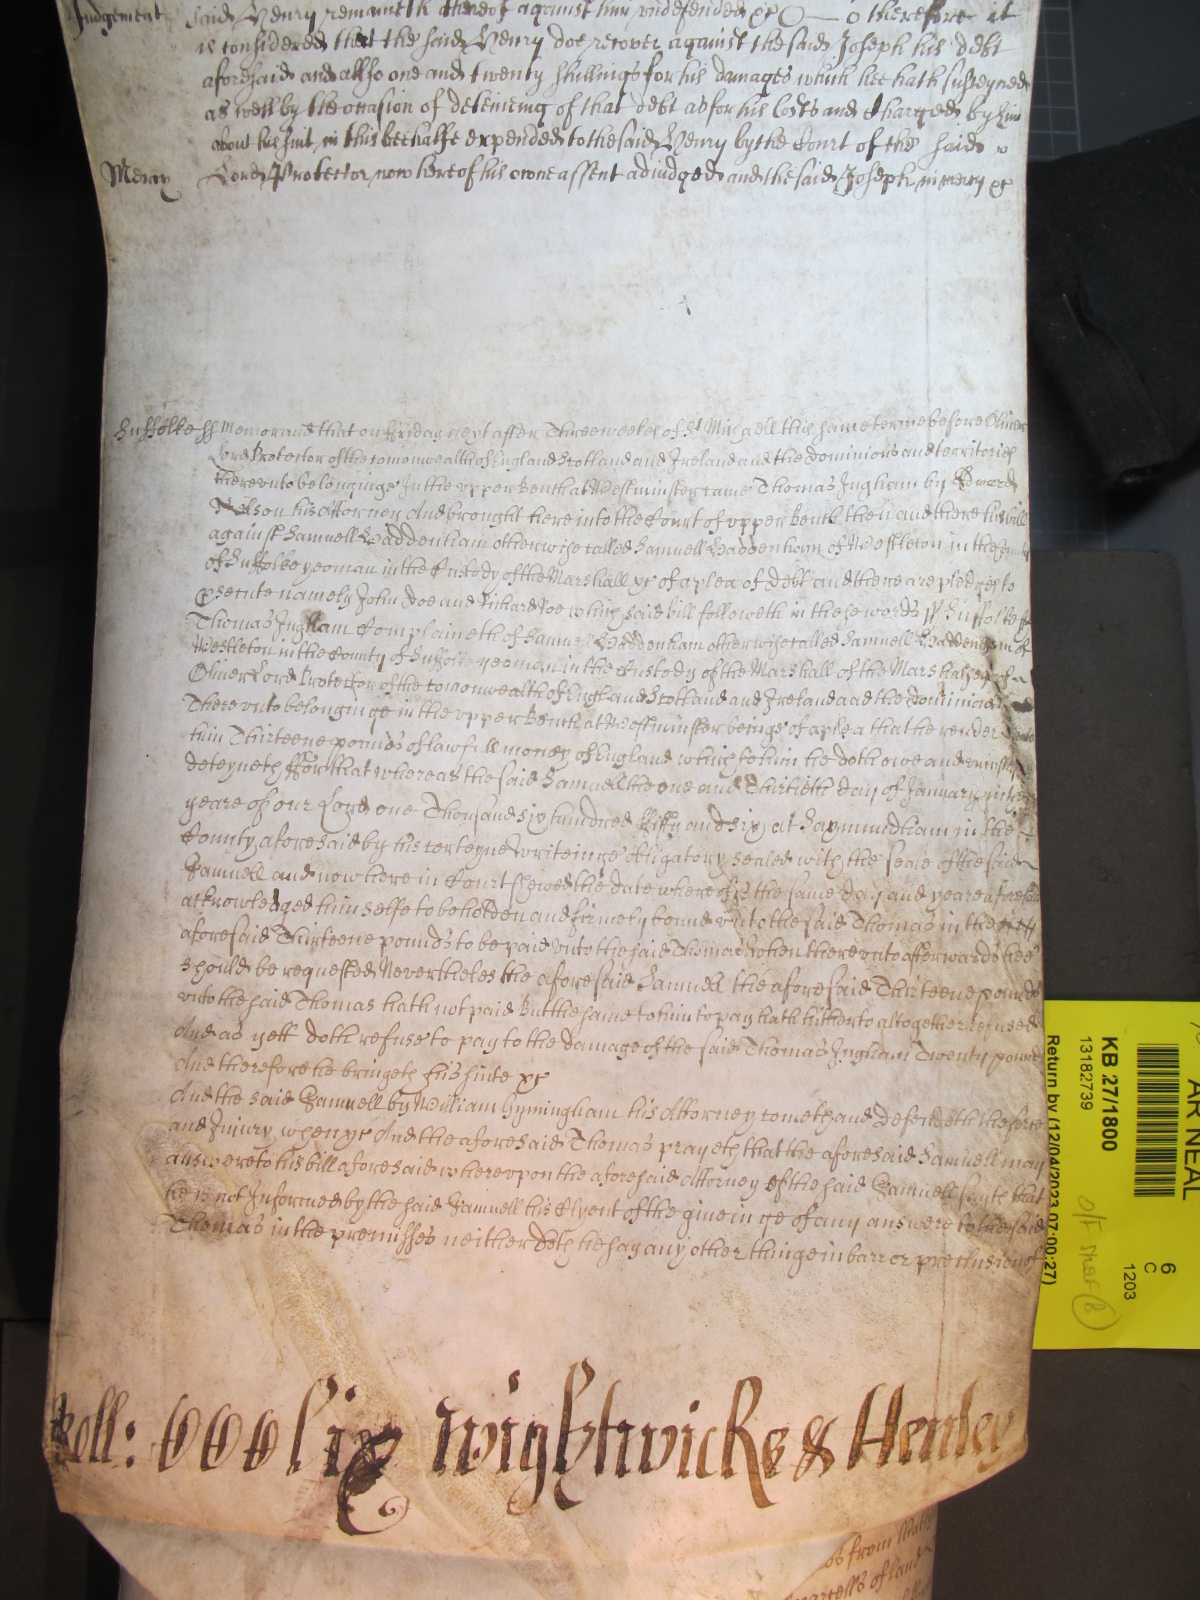 Judgement said Henry remaineth thereof against him undefended &c therefore it
is considered that the said Henry doe recover against the said Joseph his debt
aforesaid and allso one and twenty shillings for his damages which hee hath susteyned
as well by the occasion of deteineing of that debt as for his Costs and Charges by him
about his suit in this beehalfe expended to the said Henry by the Court of the said
Mercy Lord Protector now here of his owne assent adjudged and the said Joseph in mercy &c
Suffolke ss Memorand that on Friday next after Three weekes of St Michaell this same terme before Oliver
Lord Protector of the comonwealth of England Scotland and Ireland and the dominions and territories
thereunto belonginge In the upper Bench at Westminster came Thomas Ingham by Edward
Nelson his Attorney And brought here into the Court of upper Bench then and there his bill
against Samuell Haddenham otherwise called Samuell Haddenham of Westleton in the County
of Suffolke yeoman in the Custody of the Marshall &c of a plea of debt and there are pledges to
prosecute namely John Doe and Richard Roe which said bill followeth in these words ss Suffolke ss
Thomas Ingham Complaineth of Samuell Haddenham otherwise called Samuell Haddenham of
Westleton in the County of Suffolke yeoman in the Custody of the Marshall of the Marshalsey
Oliver Lord Protector of the comonwealth of England Scotland and Ireland and the dominions
Thereunto belonginge in the upper Bench at Westminster beinge of a plea that he render
him Thirteene pounds of lawfull money of England which to him he doth owe and unjustly
deteyneth ffor that whereas the said Samuell the one and Thirtieth day of January in the
yeare of our Lord one Thousand six hundred Fifty and six at Saxmundham in the
County aforesaid by his certeyne writeinge obligatory sealed with the seale of the said
Samuell and now here in Court shewed the date whereof is the same day and yeare aforesaid
acknowledged himselfe to be holden and firmely bound unto the said Thomas in the
aforesaid Thirteene pounds to be paid unto the said Thomas when thereunto afterwards hee
should be requested Nevertheles the aforesaid Samuell the aforesaid Thirteene pounds
unto the said Thomas hath not paid But the same to him to pay hath hitherto altogether refused
And as yett doth refuse to pay to the damage of the said Thomas Ingham Twenty pounds
And therefore he bringeth his suite &c
And the said Samuell by William his Attorney cometh and defendeth the force
and Injury when &c And the aforesaid Thomas prayeth that the aforesaid Samuell may
answere to his bill aforesaid whereupon the aforesaid Attorney of the said Samuell sayth that
he is not Informed by the said Samuell his Clyent of the giveinge of any answere to the said
Thomas in the premisses neither doth he say any other thinge in barr or preclusion of
Roll: Wightwicke & Henley
from
of land
AR NEAL
6
C
1203
KB 27/1800
13182739
Return by (12/04/2023 07:00:27)